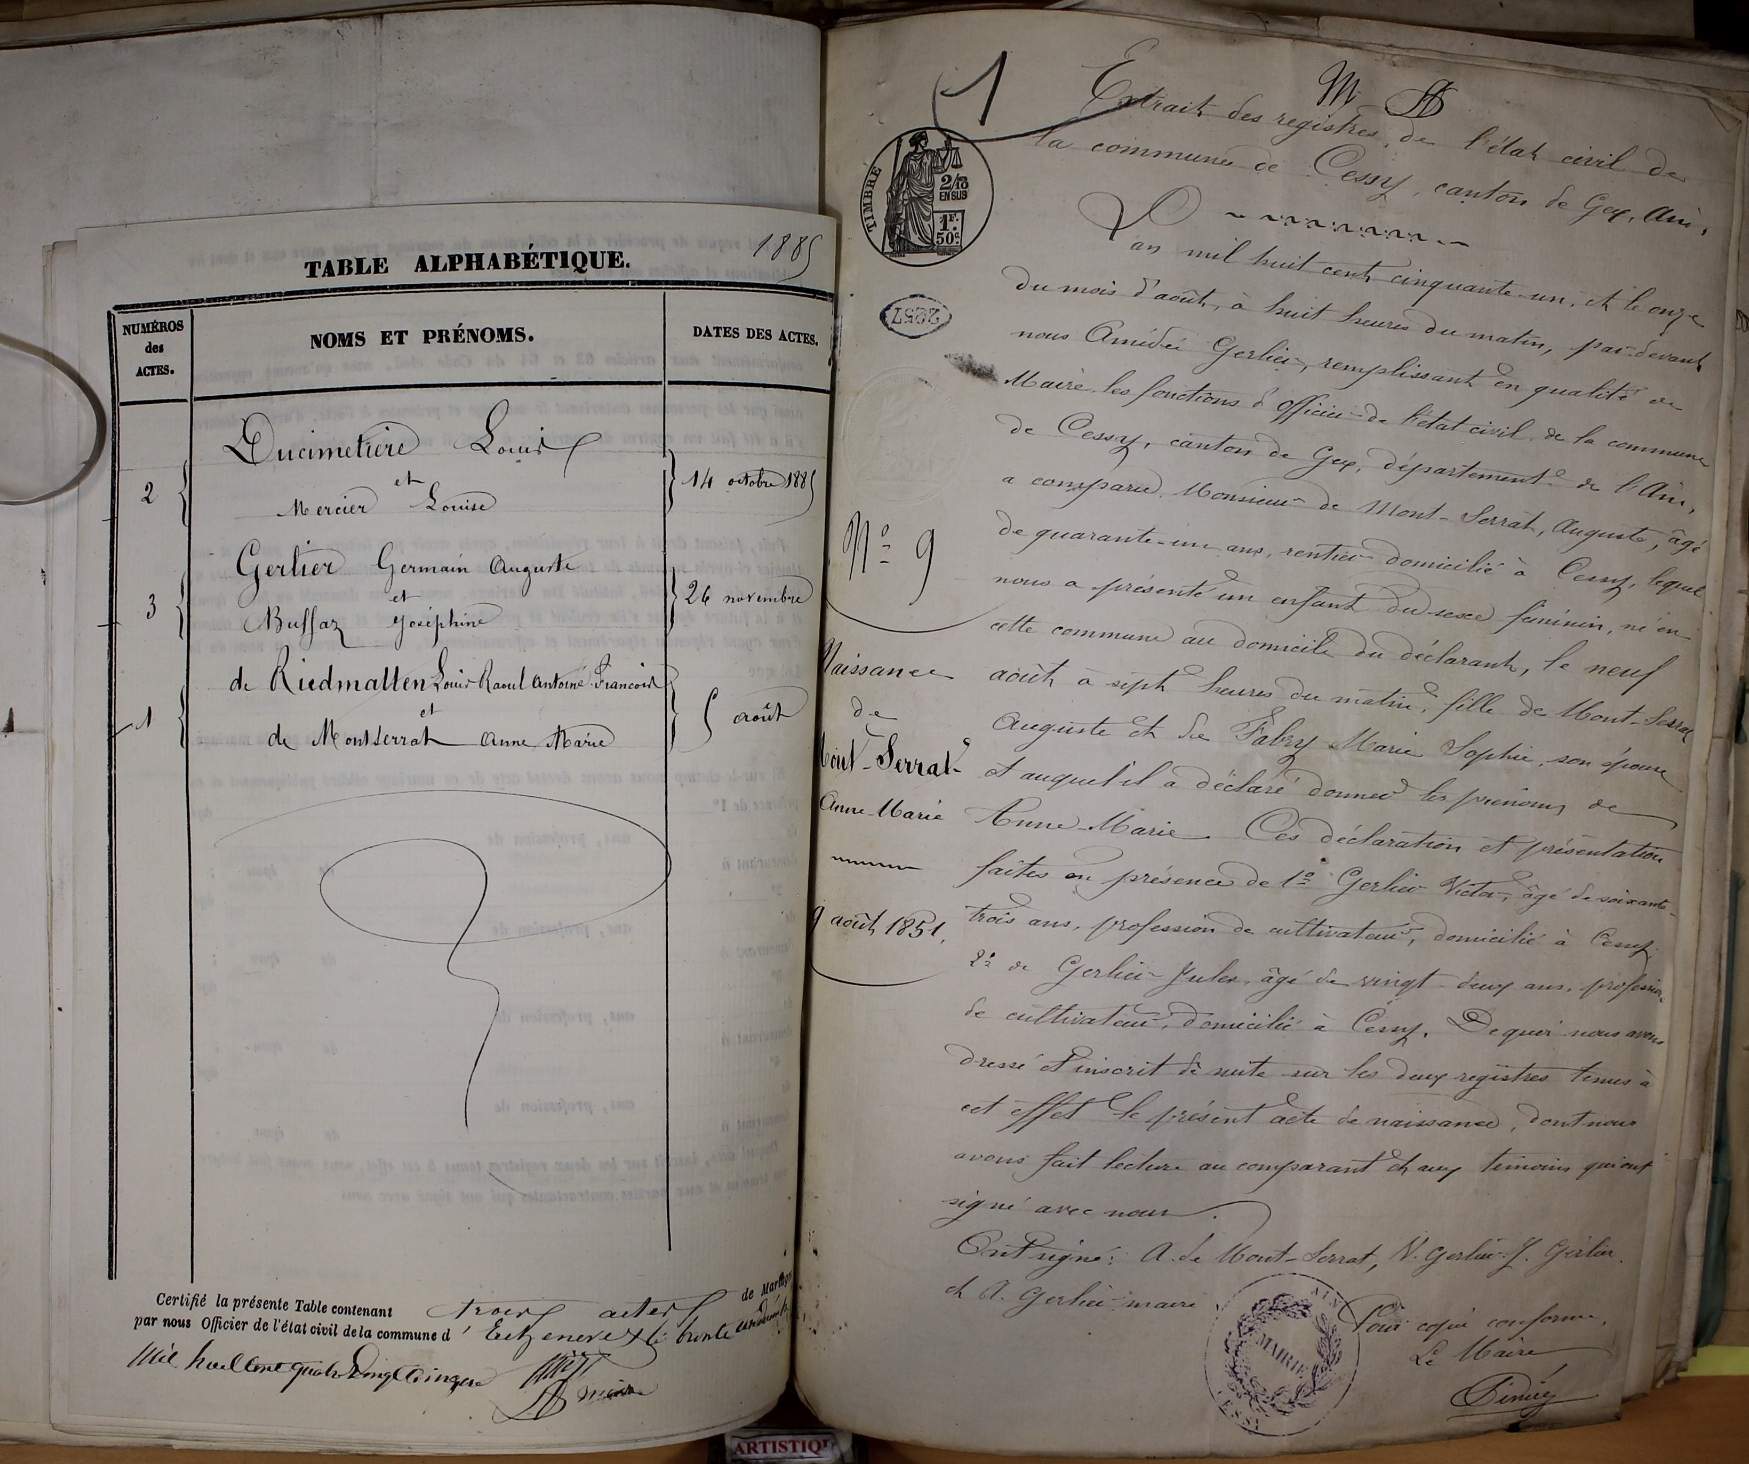 1885
TABLE ALPHABÉTIQUE.
NUMÉROS des ACTES.
NOMS ET PRÉNOMS.
DATES DES ACTES.
Ducimetière Louis
et
2
14 octobre 1885
Mercier Louise
Gerlier Germain Auguste
et
3
26 novembre
Buffaz Joséphine
de Riedmatten Louis Raoul Antoine François
et
1
5 août
de Montserrat Anne Marie
Certifié la présente Table contenant trois actes de Mariage
par nous Officier de l'état civil de la commune d'Echenevex le trente
Mil huit cent quatre vingt cinq
1
M
Extrait des registres de l'état civil de
la commune de Cessy, canton de Gex, Ain,
TIMBRE
2/10
EN SUS
1F.
50c
2257
L'an mil huit cent cinquante-un, et le onze
du mois d'août, à huit heures du matin, par-devant
nous Amédée Gerlier, remplissant en qualité de
Maire les fonctions d'officier de l'état civil de la commune
de Cessy, canton de Gex, département de l'Ain,
a comparu Monsieur de Mont-Serrat, Auguste, âgé
de quarante-un ans, rentier domicilié à Cessy, lequel
nous a présenté un enfant du sexe féminin, né en
cette commune au domicile du déclarant, le neuf
août à sept heures du matin, fille de Mont-Serrat
Auguste et de Fabry Marie Sophie, son épouse
et auquel il a déclaré donner les prénoms de
Anne-Marie. Ces déclaration et présentation
faites en présence de 1o Gerlier Victor, âgé de soixante-
trois ans, profession de cultivateur, domicilié à Cessy.
2o de Gerlier Jules, âgé de vingt-deux ans, profession
de cultivateur, domicilié à Cessy. De quoi nous avons
dressé et inscrit de suite sur les deux registres tenus à
cet effet le présent acte de naissance, dont nous
avons fait lecture au comparant et aux témoins qui ont
signé avec nous.
Ont signé: A. de Mont-Serrat, V. Gerlier, J. Gerlier
et A. Gerlier maire
No 9
Naissance
de
Mont-Serrat
Anne-Marie
9 août 1851.
Pour copie conforme,
Le Maire
MAIRIE
AIN
ARTISTIQU